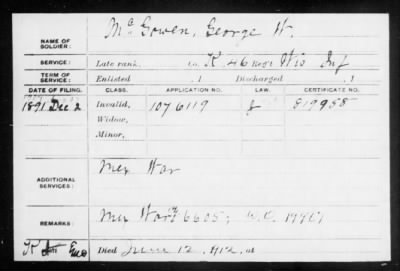 NAME OF SOLDIER: McGowen, George W.
SERVICE: Late rank, Co. K, 46 Wis Inf
TERM OF SERVICE: Enlisted , 1 Discharged , 1
DATE OF FILING. CLASS. APPLICATION NO. LAW. CERTIFICATE NO.
1891 Dec 2 Invalid, 1076119 819958
Widow,
Minor,
ADDITIONAL SERVICES: Mex War
REMARKS: Mex War 6605; W.C.
Died June 12, 1912, at